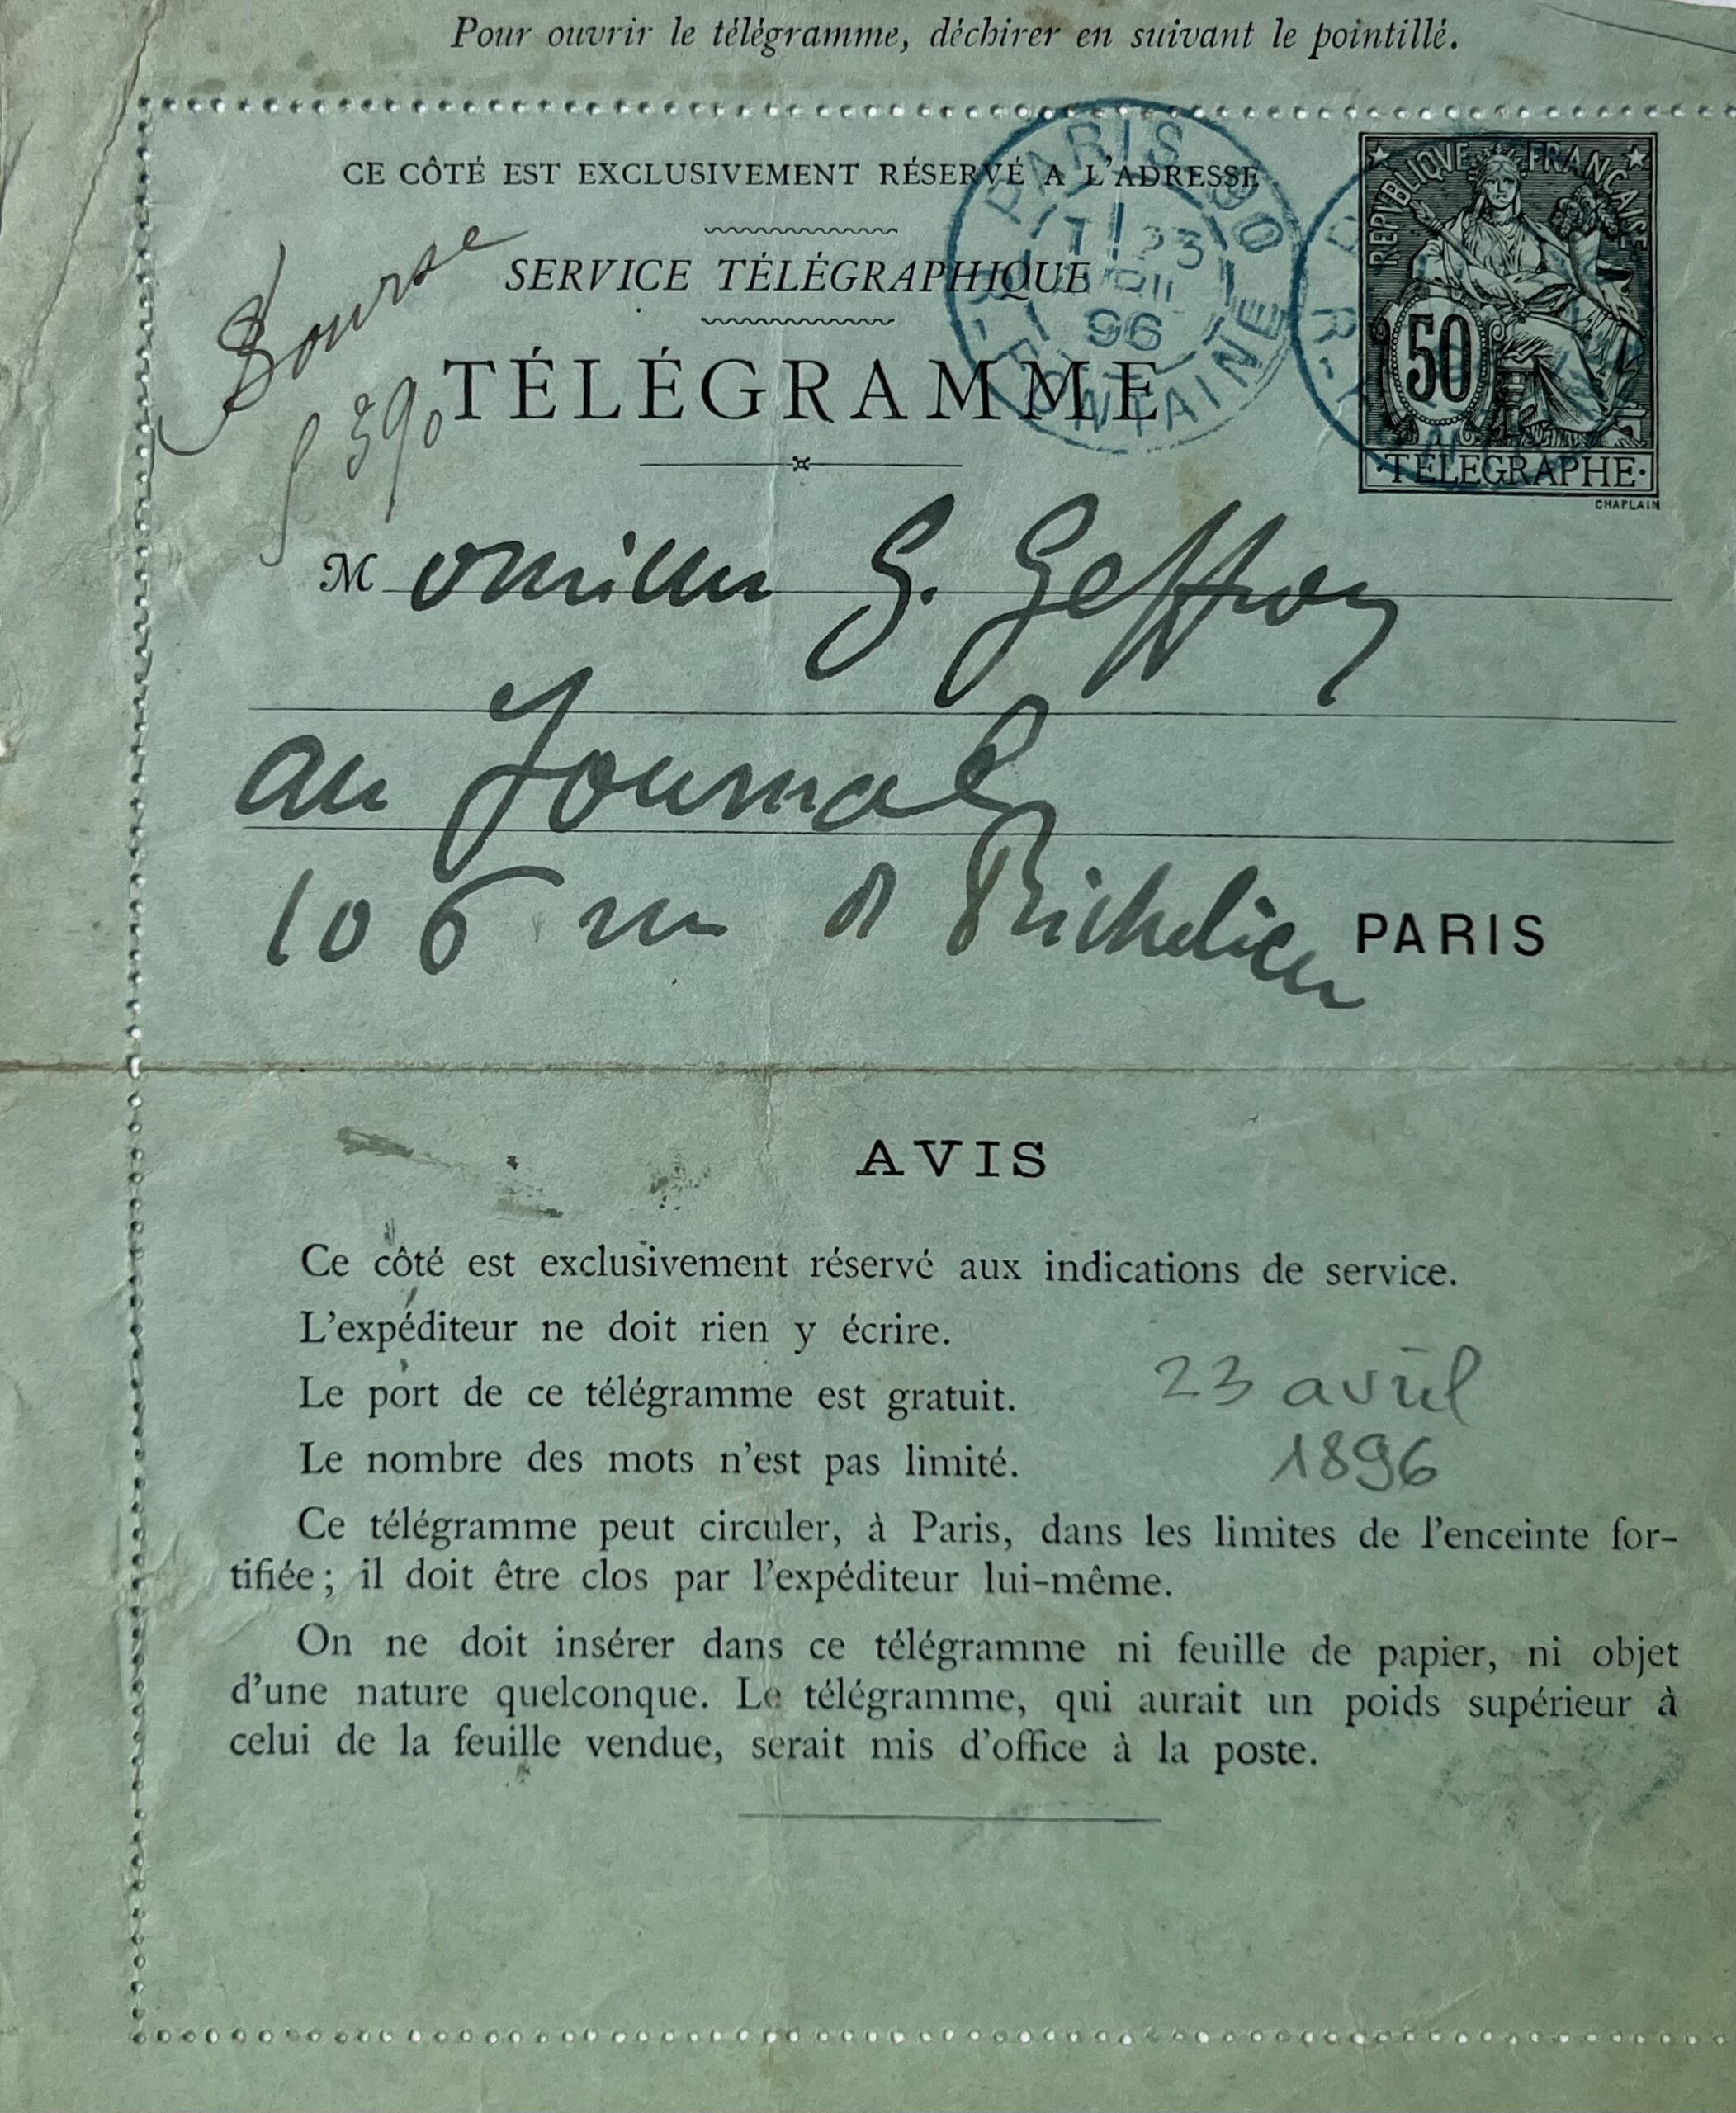 Pour ouvrir le télégramme, déchirer en suivant le pointillé.
CE CÔTÉ EST EXCLUSIVEMENT RÉSERVÉ A L'ADRESSE
SERVICE TÉLÉGRAPHIQUE
TÉLÉGRAMME
Bourse
390
PARIS 90
23
96
FONTAINE
REPVBLIQVE FRANCAISE
50
·TELEGRAPHE·
CHAPLAIN
Monsieur G. Geffroy
au Journal
106 rue d Richelieu PARIS
AVIS
Ce côté est exclusivement réservé aux indications de service.
L'expéditeur ne doit rien y écrire.
Le port de ce télégramme est gratuit.
Le nombre des mots n'est pas limité.
23 avril
1896
Ce télégramme peut circuler, à Paris, dans les limites de l'enceinte for-
tifiée; il doit être clos par l'expéditeur lui-même.
On ne doit insérer dans ce télégramme ni feuille de papier, ni objet
d'une nature quelconque. Le télégramme, qui aurait un poids supérieur à
celui de la feuille vendue, serait mis d'office à la poste.